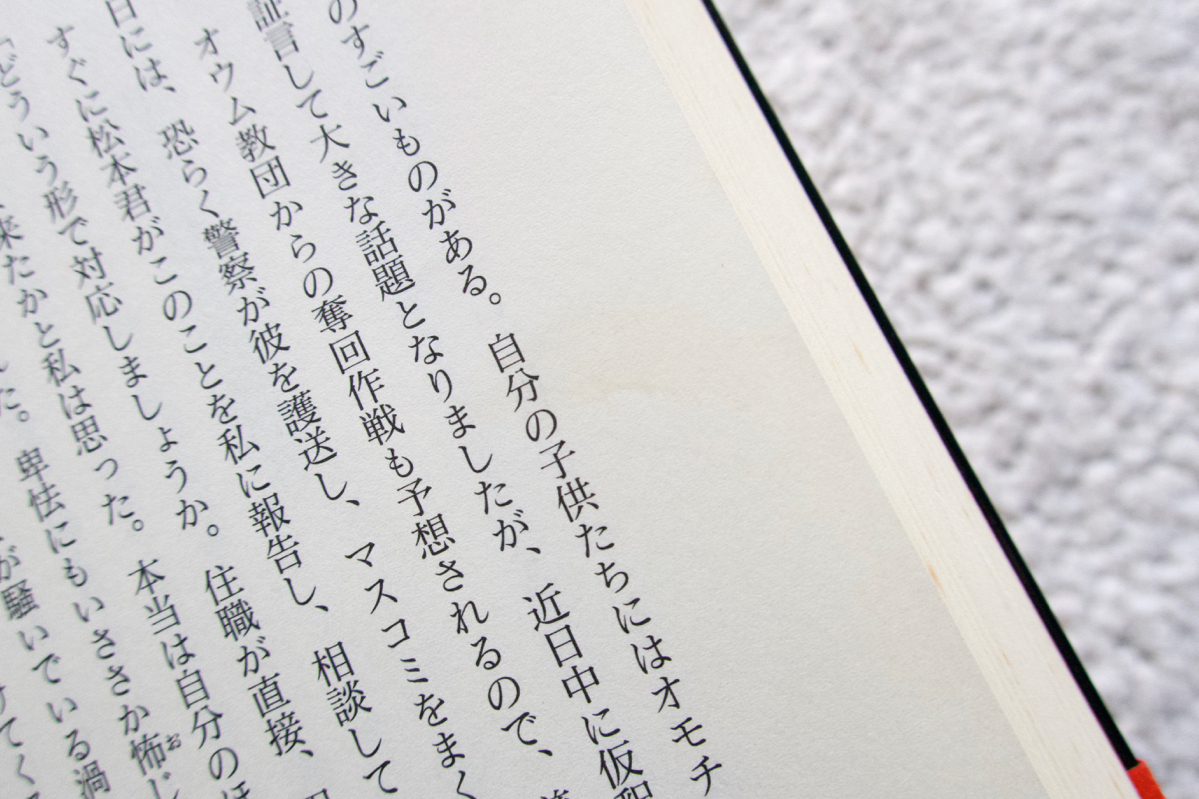 のすごいものがある。自分の子供たちにはオモチ
証言して大きな話題となりましたが、近日中に仮釈
オウム教団からの奪回作戦も予想されるので、
日には、恐らく警察が彼を護送し、マスコミをまく
すぐに松本君がこのことを私に報告し、相談して
「どういう形で対応しましょうか。住職が直接、
来たかと私は思った。本当は自分の
た。卑怯にもいささか怖じ
が騒いでいる渦
けてく